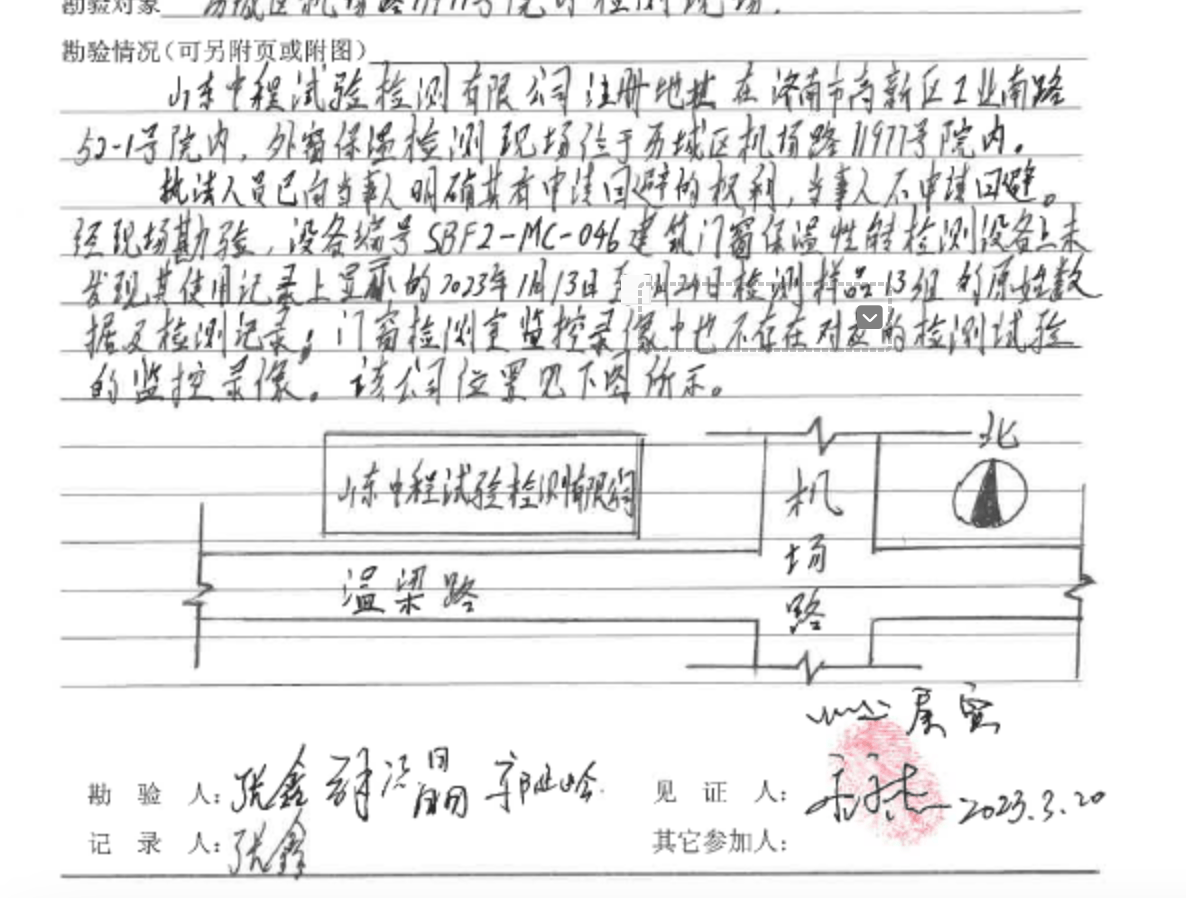 勘验对象 历城区机场路11977号院内检测现场.
勘验情况(可另附页或附图)
山东中程试验检测有限公司注册地址在济南市高新区工业南路
52-1号院内,外窗保温检测现场位于历城区机场路11977号院内。
执法人员已向当事人明确其有申请回避的权利,当事人不申请回避。
经现场勘验,设备编号SBF2-MC-046建筑门窗保温性能检测设备上未
发现其使用记录上显示的2023年1月13日至 月29日检测样品13组的原始数
据及检测记录;门窗检测室监控录像中也不存在对应的检测试验
的监控录像。该公司位置见下图所示。
北
山东中程试验检测有限公司
机
场
路
温梁路
属实
勘 验 人: 张鑫
见 证 人: 2023.3.20
记 录 人: 张鑫
其它参加人: